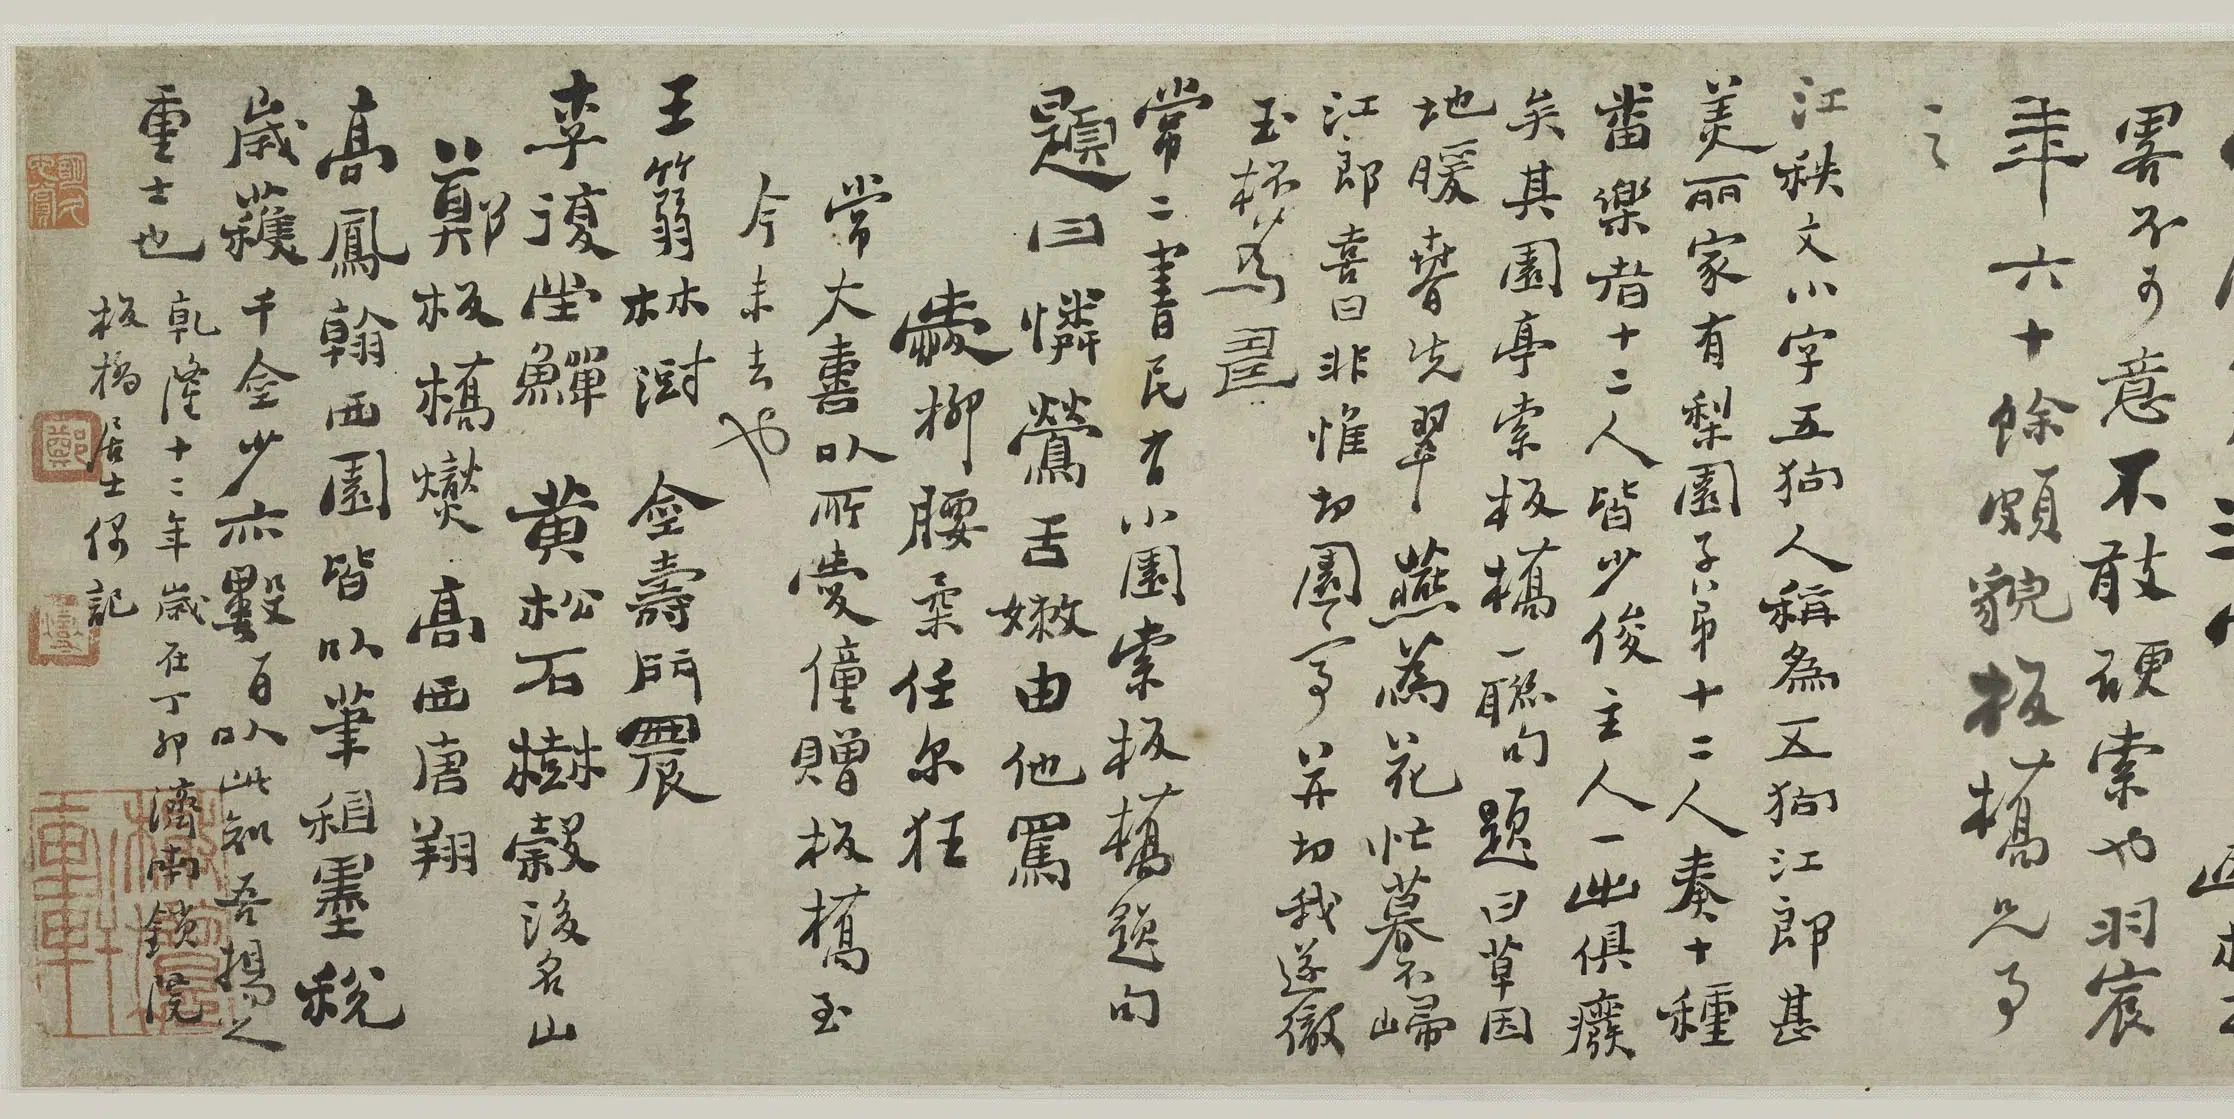 畧不可意不敢硬索也羽宸
年六十餘頗貌板橋兄事
之
江秩文小字五狗人稱為五狗江郎甚
美麗家有梨園子弟十二人奏十種
番樂者十二人皆少俊主人一出俱廢
矣其園亭索板橋一聯句題曰草因
地暖春先翠燕為花忙暮不歸
江郎喜曰非惟切園亭並切我遂徹
玉杯為壽
常二書民有小園索板橋題句
題曰憐鶯舌嫩由他罵
愛柳腰柔任尔狂
常大喜以所愛僮贈板橋至
今未去也
王篛林澍 金壽門農
李復堂鱓 黃松石樹穀後名山
鄭板橋燮 高西唐翔
高鳳翰西園皆以筆租墨稅
歲穫千金少亦數百以此知吾揚之
重士也 乾隆十二年歲在丁卯濟南鎖院
板橋居士偶記